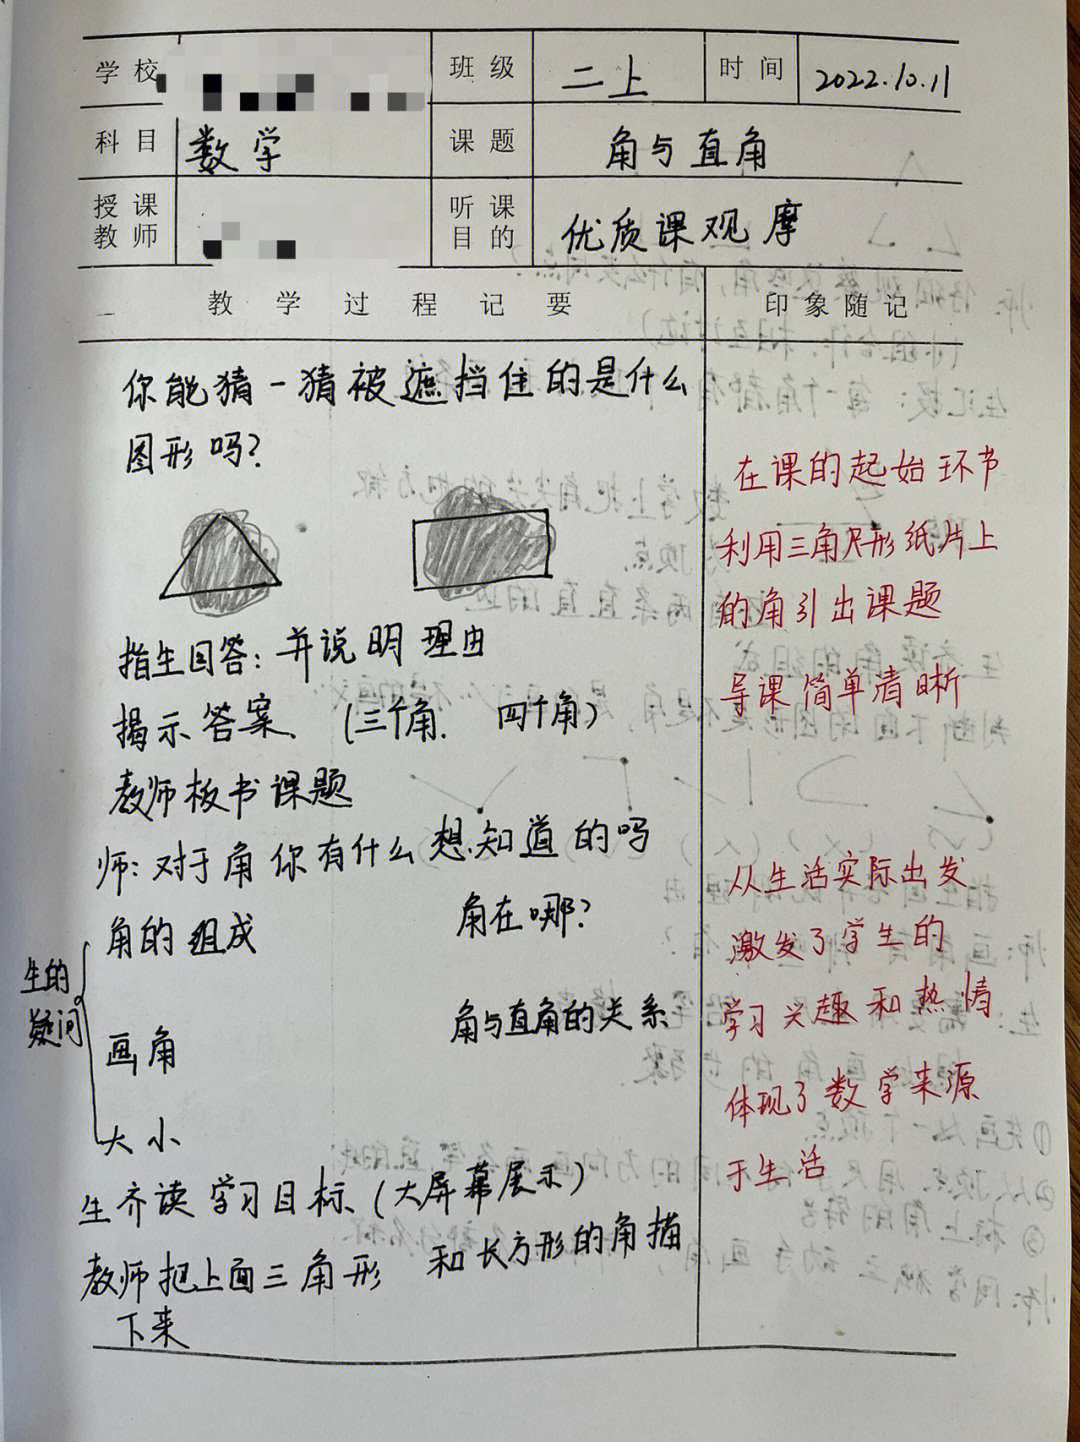 学校 班级 二上 时间 2022.10.11
科目 数学 课题 角与直角
授课教师 听课目的 优质课观摩
教学过程记要 印象随记
你能猜一猜被遮挡住的是什么
图形吗?
指生回答:并说明理由
揭示答案、(三个角、四个角)
教师板书课题
师:对于角你有什么想知道的吗
生的疑问
角的组成 角在哪?
画角 角与直角的关系
大小
生齐读学习目标(大屏幕展示)
教师把上面三角形和长方形的角描
下来
在课的起始环节
利用三角尺形纸片上
的角引出课题
导课简单清晰
从生活实际出发
激发了学生的
学习兴趣和热情
体现了数学来源
于生活